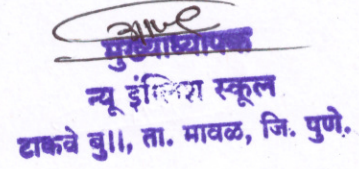 मुख्याध्यापक
न्यू इंग्लिश स्कूल
टाकवे बु॥, ता. मावळ, जि. पुणे.